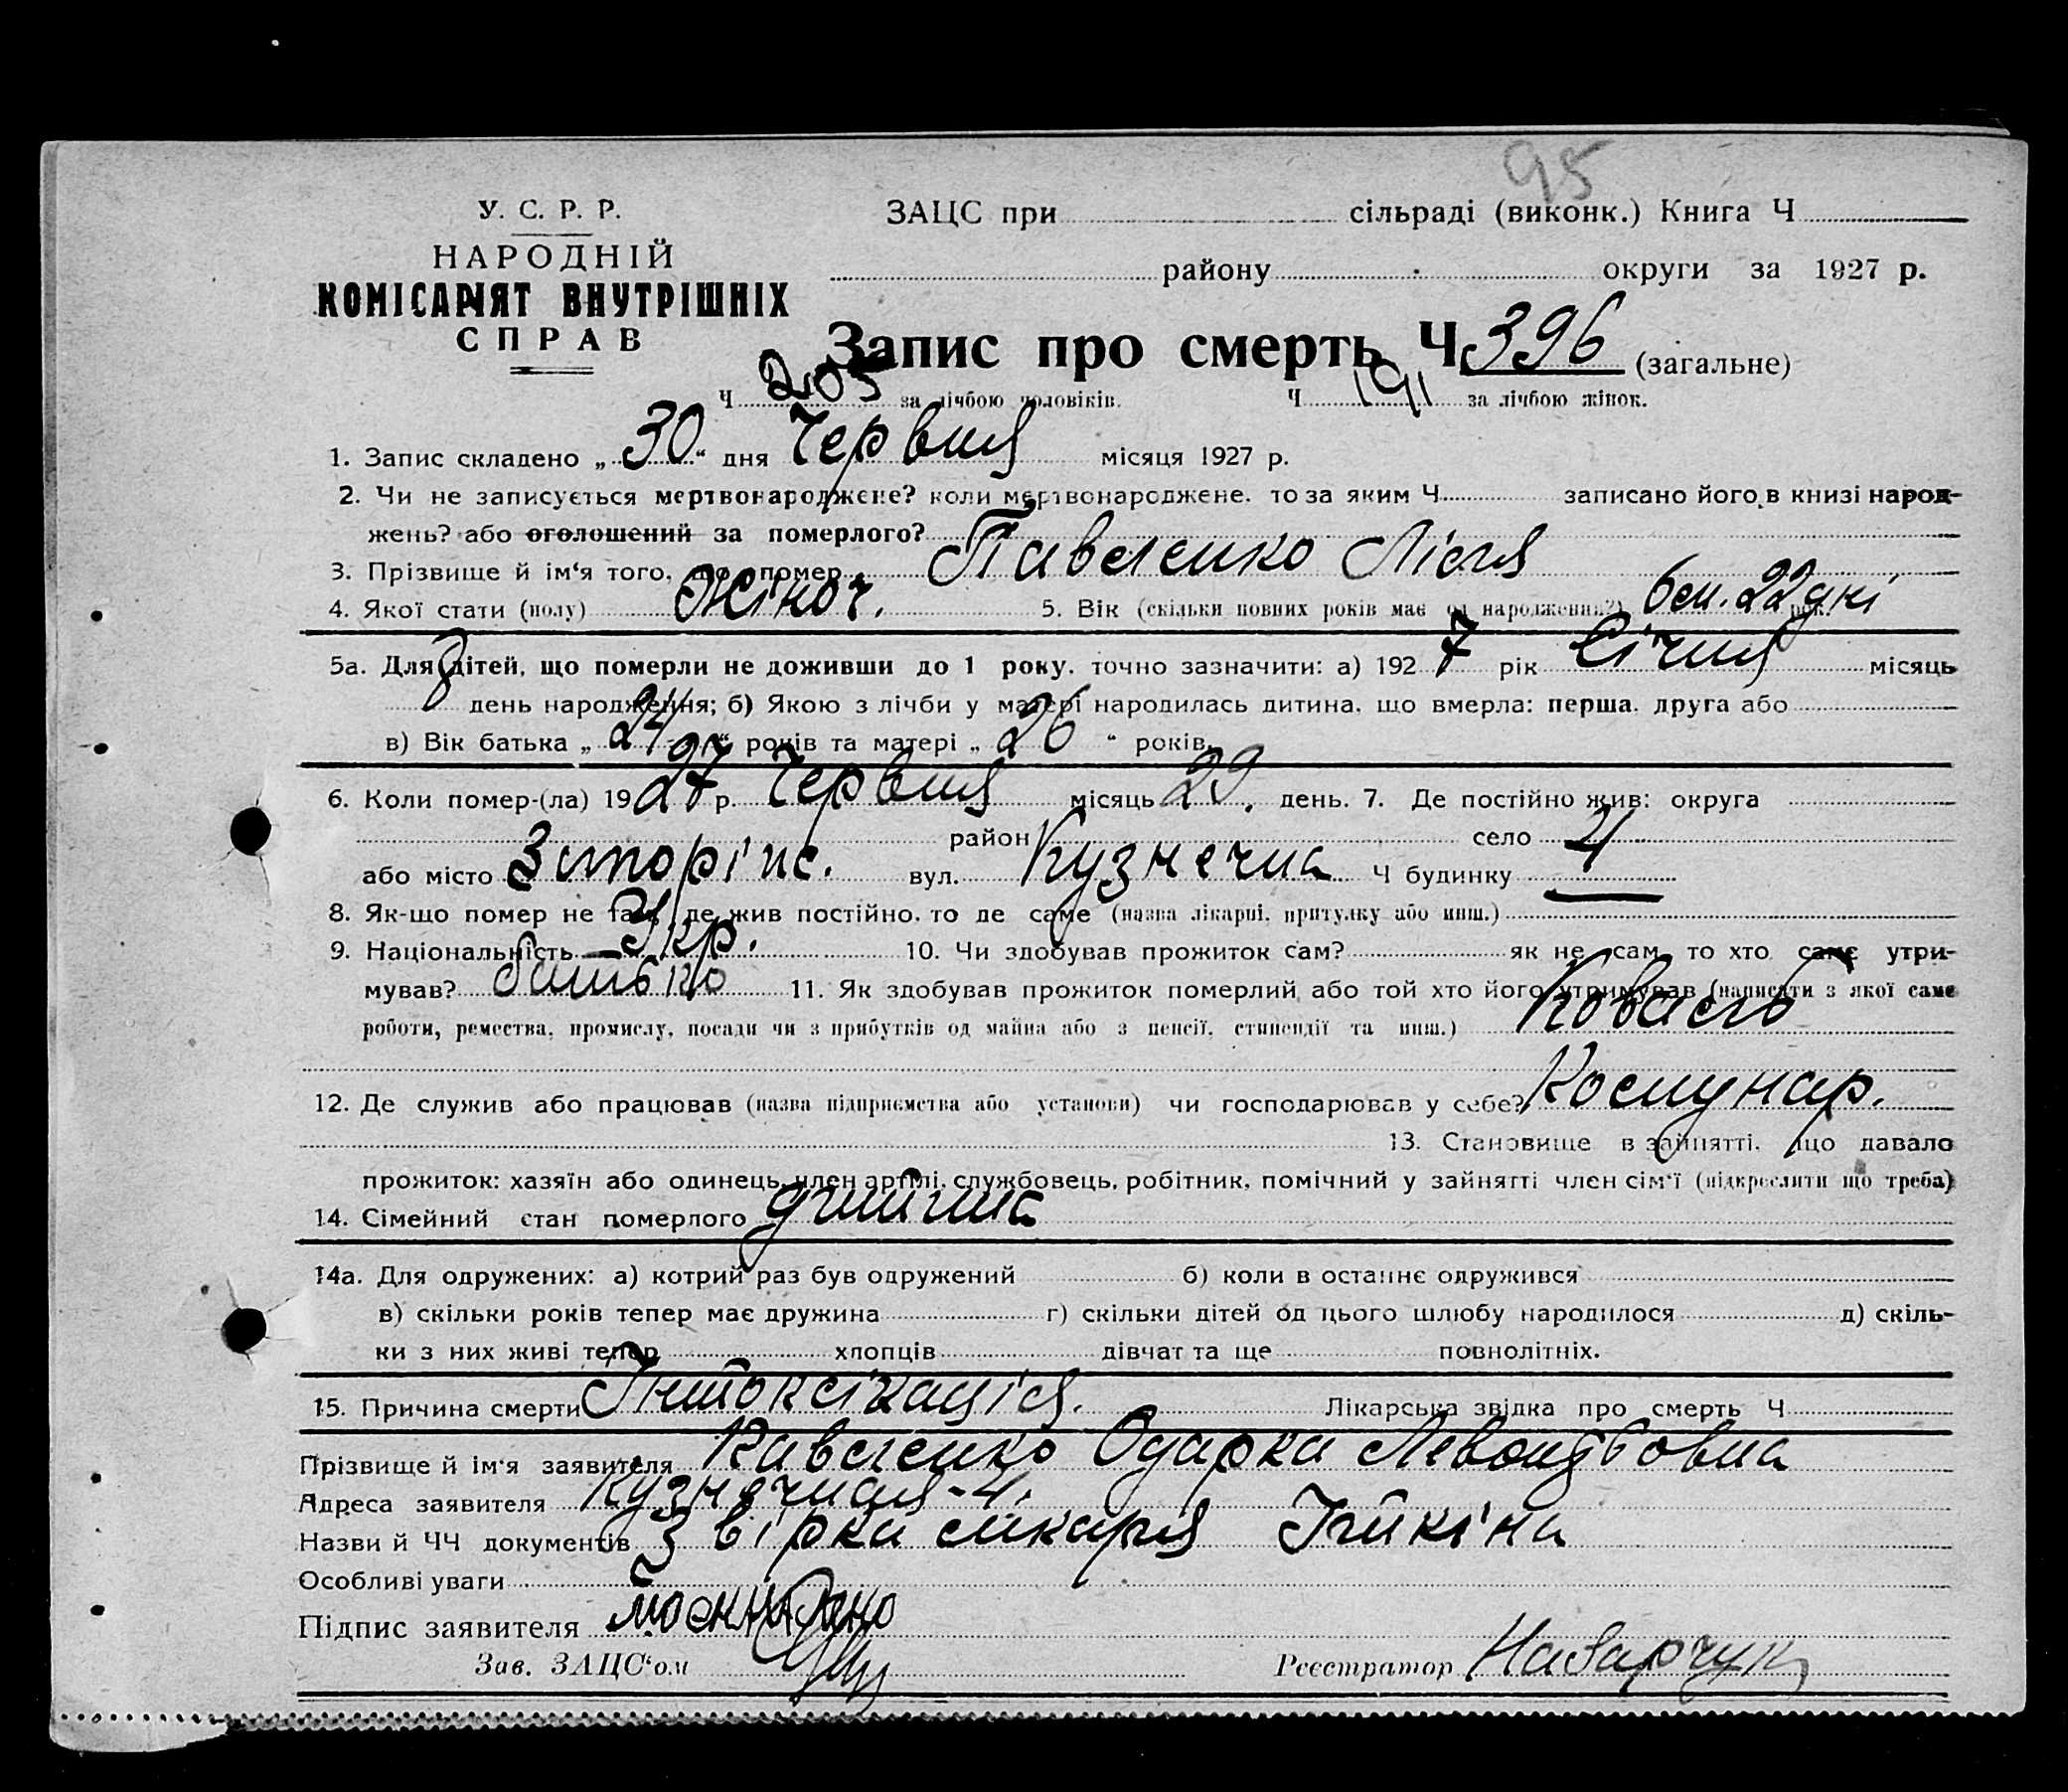 95
У. С. Р. Р.
НАРОДНІЙ
КОМІСАРІЯТ ВНУТРІШНІХ
СПРАВ
ЗАЦС при сільраді (виконк.) Книга Ч
району округи за 1927 р.
Запис про смерть Ч. 396 (загальне)
Ч 205 за лічбою чоловіків. Ч 191 за лічбою жінок.
1. Запис складено „30“ дня Червня місяця 1927 р.
2. Чи не записується мертвонароджене? коли мертвонароджене, то за яким Ч записано його в книзі народ-
жень? або оголошений за померлого?
3. Прізвище й ім‘я того, що помер Павленко Лідія
4. Якої стати (полу) Жіноч. 5. Вік (скільки повних років має од народження?) 6 м. 22 дні рок.
5а. Для дітей, що померли не доживши до 1 року, точно зазначити: а) 1927 рік Січня місяць
8 день народження; б) Якою з лічби у матері народилась дитина, що вмерла: перша, друга або
в) Вік батька „24“ років та матері „26“ років.
6. Коли помер-(ла) 1927 р. Червня місяць 29. день. 7. Де постійно жив: округа
район село
або місто Запоріж. вул. Кузнечна Ч будинку 4
8. Як-що помер не там, де жив постійно, то де саме (назва лікарні, притулку або инш.)
9. Національність Укр. 10. Чи здобував прожиток сам? як не сам, то хто саме утри-
мував? батько 11. Як здобував прожиток померлий або той хто його утримував (написати з якої саме
роботи, ремества, промислу, посади чи з прибутків од майна або з пенсії, стипендії та инш.) Коваль
12. Де служив або працював (назва підприємства або установи) чи господарював у себе? Комунар.
13. Становище в зайнятті, що давало
прожиток: хазяїн або одинець, член артілі, службовець, робітник, помічний у зайнятті член сім‘ї (підкреслити що треба)
14. Сімейний стан померлого дитина
14а. Для одружених: а) котрий раз був одружений б) коли в останнє одружився
в) скільки років тепер має дружина г) скільки дітей од цього шлюбу народилося д) скіль-
ки з них живі тепер хлопців дівчат та ще повнолітніх.
15. Причина смерти Інтоксікація. Лікарська звідка про смерть Ч
Прізвище й ім‘я заявителя Павленко Одарка Левонтьовна
Адреса заявителя Кузнечная-4.
Назви й ЧЧ документів Звірка лікаря Іткіна
Особливі уваги
Підпис заявителя
Зав. ЗАЦС‘ом Реєстратор Назарчук